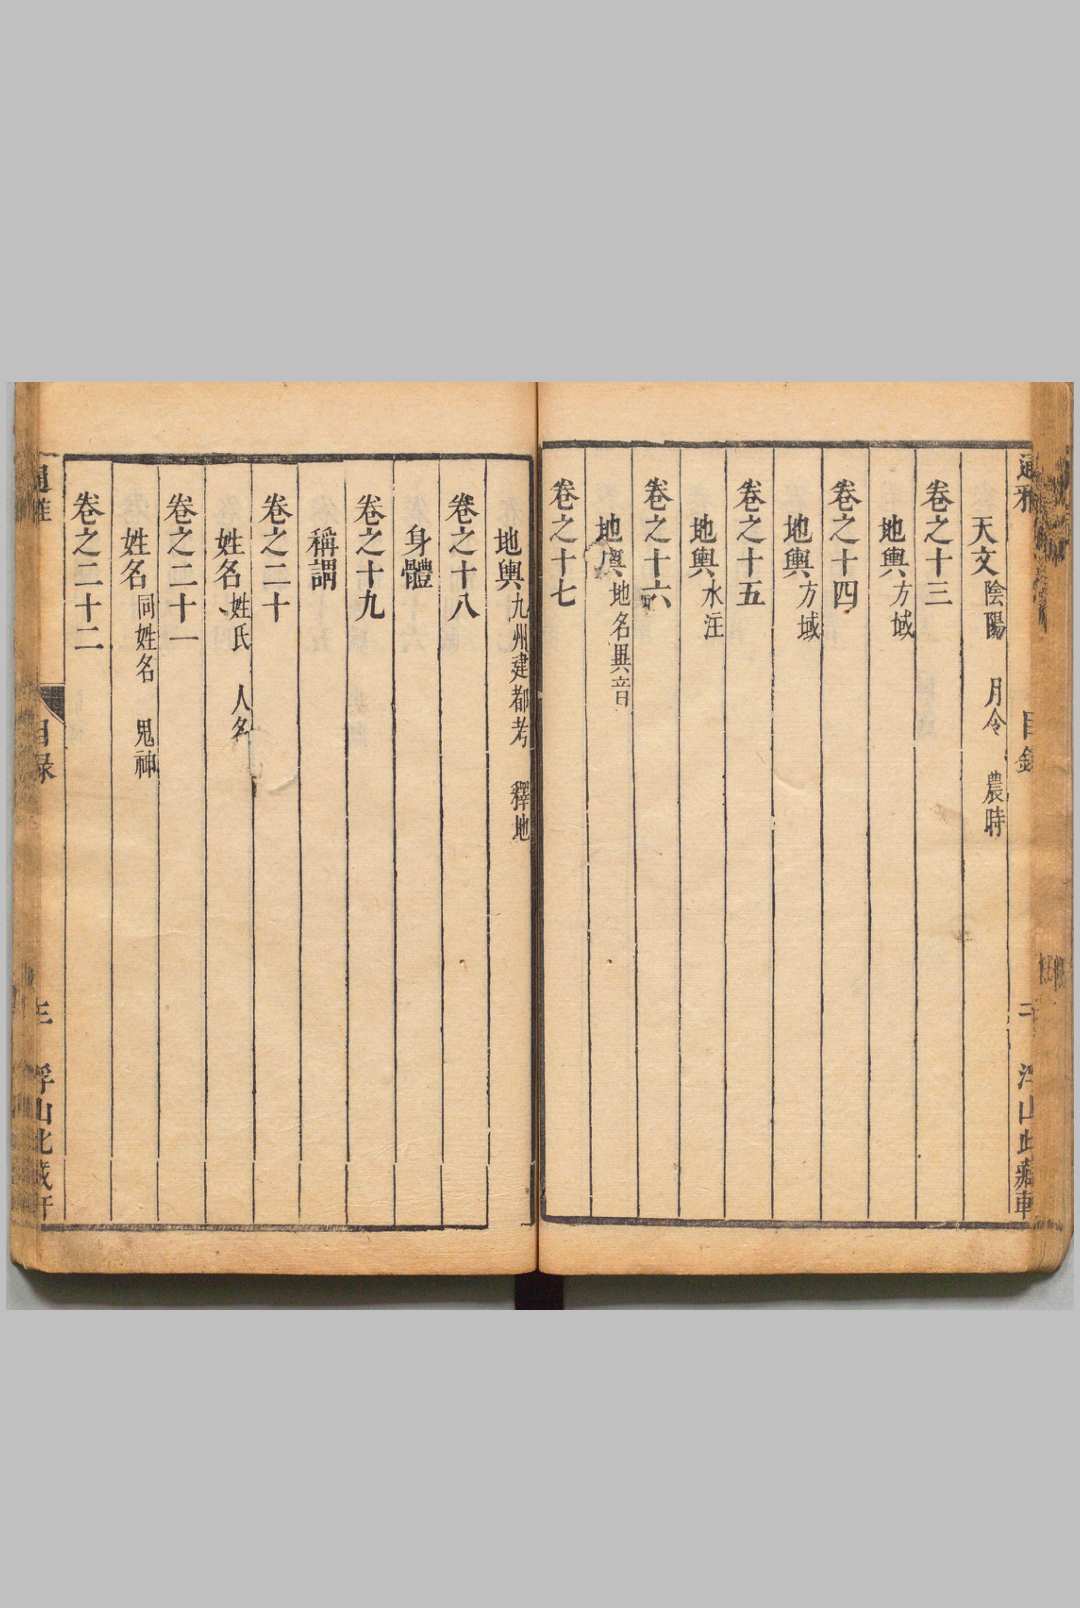 通雅 目錄 二 浮山此藏軒
天文 陰陽 月令 農時
卷之十三
地輿 方域
卷之十四
地輿 方域
卷之十五
地輿 水注
卷之十六
地輿 地名異音
卷之十七
地輿 九州建都考 釋地
卷之十八
身體
卷之十九
稱謂
卷之二十
姓名 姓氏 人名
卷之二十一
姓名 同姓名 鬼神
卷之二十二
通雅 目錄 三 浮山此藏軒